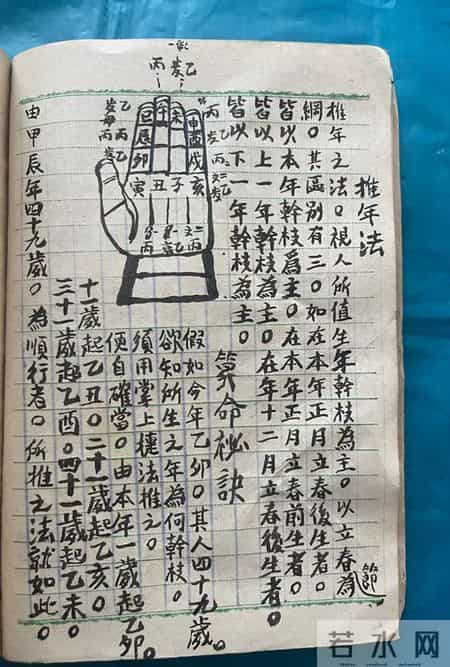 推年法
推年之法。視人所值生年幹枝為主。以立春為節
綱。其區别有三。如在本年正月立春後生者。
皆以本年幹枝爲主。在本年正月立春前生者。
皆以上一年幹枝爲主。在年十二月立春後生者。
皆以下一年幹枝為主。
算命秘訣
假如今年乙卯。其人四十九歲。
欲知所生之年為何幹枝。
須用掌上法推之。
便自確當。由本年一歲起乙卯。
十一歲起乙丑。二十一歲起乙亥。
三十一歲起乙酉。四十一歲起乙未。
由甲辰年四十九歲。為順行者。所推之法就如此。
巳午未申
辰酉
卯戌
寅丑子亥
若水网